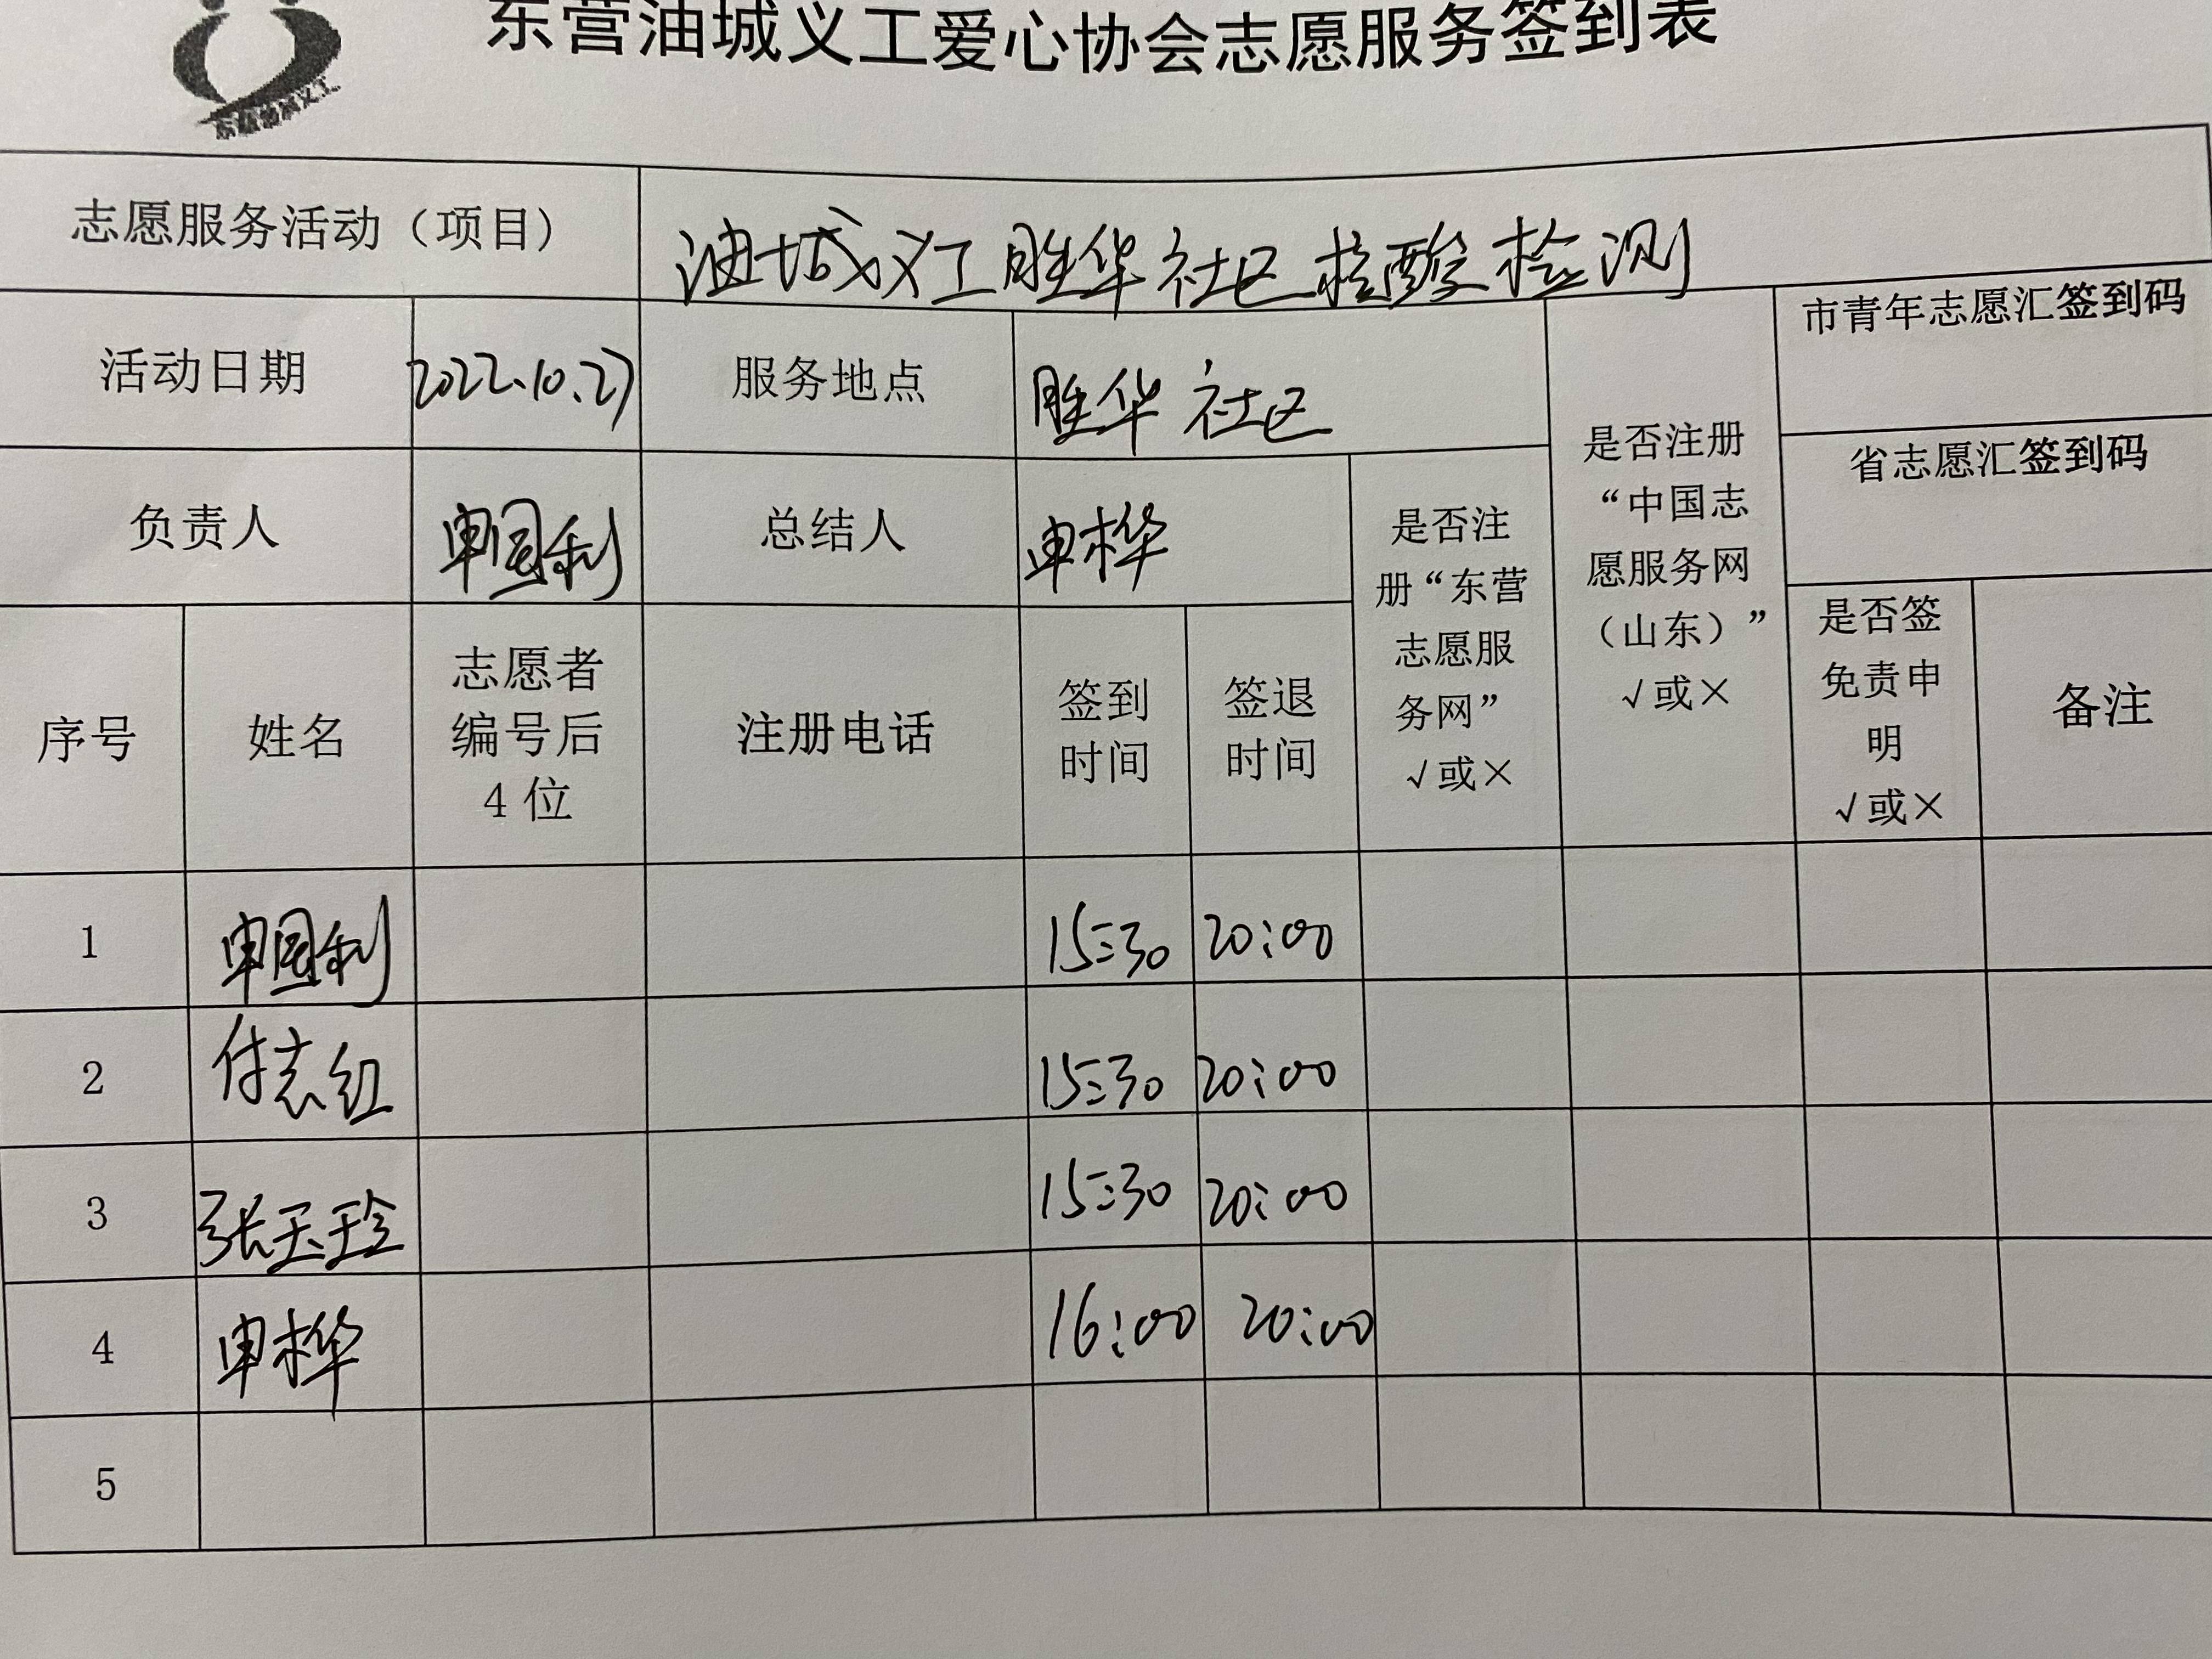 东营油城义工
东营油城义工爱心协会志愿服务签到表
志愿服务活动（项目） 油城义工胜华社区核酸检测
活动日期 2022.10.27 服务地点 胜华社区
市青年志愿汇签到码
省志愿汇签到码
负责人 申国利 总结人 申桦
是否注
册“东营
志愿服
务网”
√或×
是否注册
“中国志
愿服务网
（山东）”
√或×
是否签
免责申
明
√或×
备注
序号
姓名
志愿者
编号后
4 位
注册电话
签到
时间
签退
时间
1 申国利 15:30 20:00
2 付志红 15:30 20:00
3 张玉玲 15:30 20:00
4 申桦 16:00 20:00
5